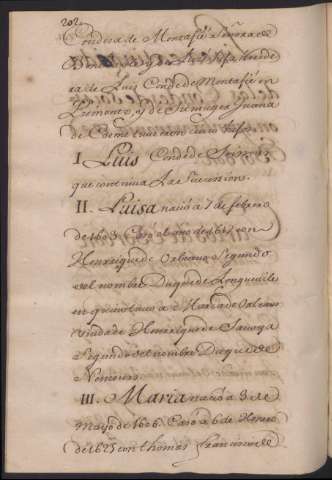 202
Condesa de Montafié Señora de
Bonneta y de Hija herede
ra de Luis Conde de Montafié en
Piemonte, y de su muger Juana
de Coeme tuvieron su hijos
I. Luis Conde de Soisons
que continua la sucession.
II. Luisa nació a 7 de febrero
de 1603. Casó el año de 1617 con
Henrrique de Valois Segundo
del nombre Duque de Longueville
en quien tuvo a Maria de
viuda de Henrrique de Savoya
Segundo del nombre Duque de
Nemours.
III. Maria nació a 3 de
Mayo de 1606. Casó a 6 de Henero
de 1625 con thomas Francisco de